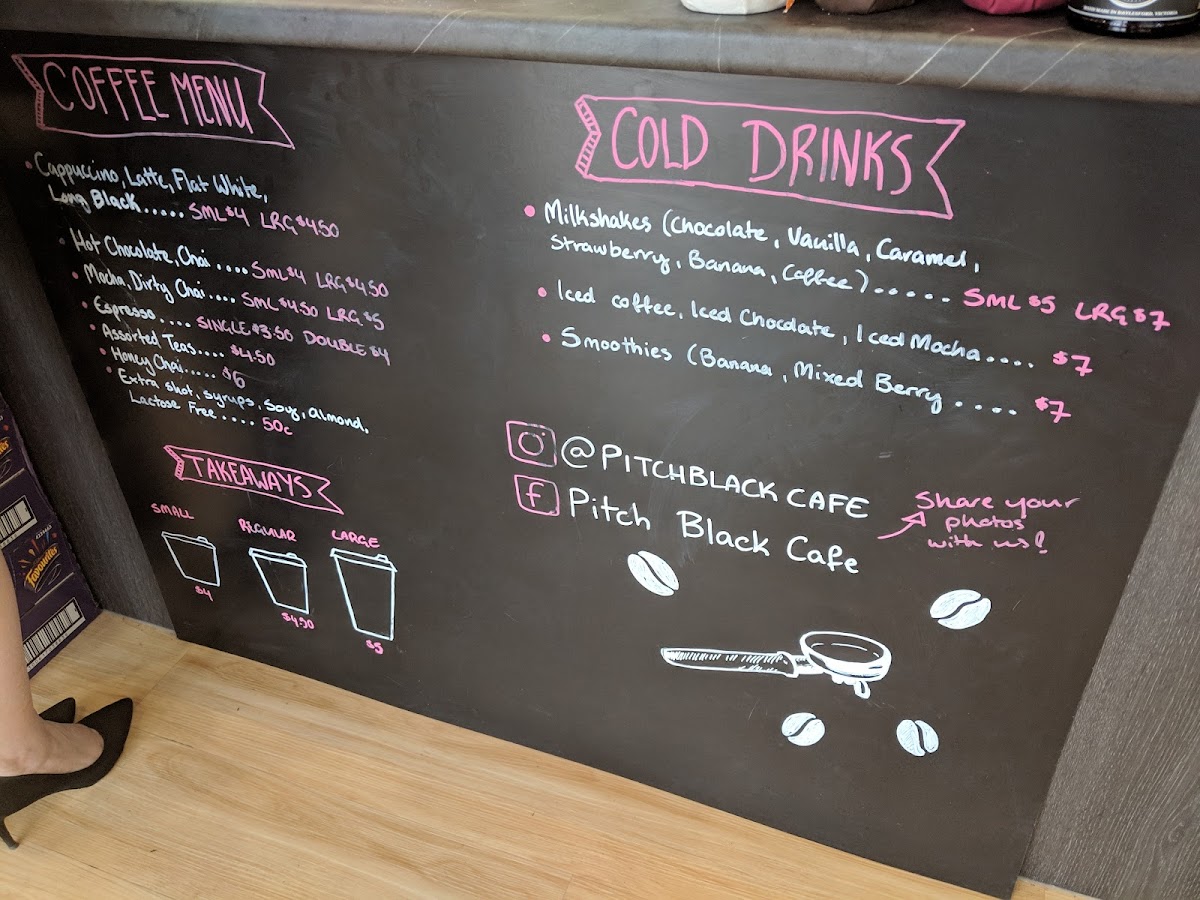 COFFEE MENU
Cappuccino, Latte, Flat White,
Long Black..... SML $4 LRG $4.50
Hot Chocolate, Chai .... SML $4 LRG $4.50
Mocha, Dirty Chai.... SML $4.50 LRG $5
Espresso .... SINGLE $3.50 DOUBLE $4
Assorted Teas.... $4.50
Honey Chai..... $6
Extra shot, syrups, Soy, almond,
Lactose Free..... 50c
TAKEAWAYS
SMALL REGULAR LARGE
$4 $4.50 $5
COLD DRINKS
Milkshakes (Chocolate, Vanilla, Caramel,
Strawberry, Banana, Coffee)..... SML $5 LRG $7
Iced coffee, Iced Chocolate, Iced Mocha.... $7
Smoothies (Banana, Mixed Berry .... $7
@PITCHBLACK CAFE
f Pitch Black Cafe
Share your
photos
with us!
Favourites